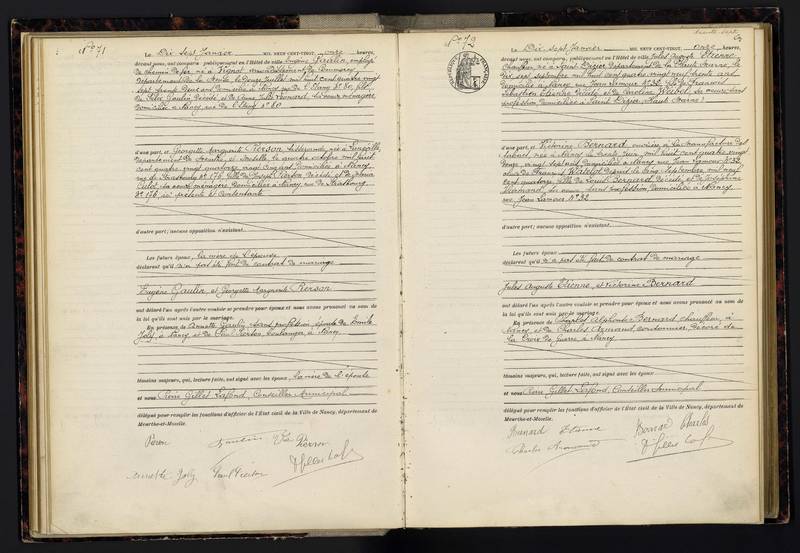 N° 71
Le Dix sept Janvier MIL NEUF CENT-VINGT onze heures,
devant nous, ont comparu publiquement en l'Hôtel de ville Eugène Gaulin, employé
de chemin de fer, né à Vignot arrondissement de Commercy
Département de la Meuse, le douze Juillet mil huit cent quatre vingt
sept trente deux ans domicilié à Nancy rue de l'Etang N° 80, fils
domiciliée à Nancy rue de l'Etang N° 80
d'une part, et Georgette Marguerite Pierson, née à Lunéville,
Département de Meurthe et Moselle, le quatre octobre mil huit
cent quatre vingt quatorze vingt cinq ans domiciliée à Nancy,
rue de Strasbourg N° 176, fille de Joseph Pierson décédé et de
sa veuve ménagère domiciliée à Nancy, rue de Strasbourg
N° 176, ici présente & consentante
d'autre part; aucune opposition n'existant.
Les futurs époux, la mère de l'épouse
déclarent qu'il n'a pas été fait de contrat de mariage
Eugène Gaulin, et Georgette Marguerite Pierson
ont déclaré l'un après l'autre vouloir se prendre pour époux et nous avons prononcé au nom de
la loi qu'ils sont unis par le mariage.
En présence de Annette sans profession, épouse de Emile
Joly, à Nancy et de Paul boulanger, à Nancy
témoins majeurs, qui, lecture faite, ont signé avec les époux, la mère de l'épouse
et nous Pierre Gillet Lafond, Conseiller Municipal
délégué pour remplir les fonctions d'officier de l'État civil de la Ville de Nancy, département de
Meurthe-et-Moselle.
Gaulin Vve Pierson
Annette Joly
N° 72
trente sept
Le Dix sept Janvier MIL NEUF CENT-VINGT onze heures,
devant nous, ont comparu publiquement en l'Hôtel de ville Jules Auguste Etienne
Chauffeur, né à Saint Dizier Département de la Haute Marne, le
dix sept septembre mil huit cent quatre vingt neuf trente ans
domicilié à Nancy rue Jean Lamour N° 32 fils de François
Sébastien Etienne décédé et de Caroline sa veuve sans
profession domiciliée à Saint Dizier (Haute Marne)
d'une part, et Victorine Bernard ouvrière à la manufacture des
tabacs, née à Nancy le trente Juin mil huit cent quatre vingt
vingt sept ans domiciliée à Nancy rue Jean Lamour N° 32
cent quatorze fille de Louis Bernard décédé et de Joséphine
sa veuve, sans profession, domiciliée à Nancy
rue Jean Lamour N° 32
d'autre part; aucune opposition n'existant.
Les futurs époux
déclarent qu'il n'a pas été fait de contrat de mariage
Jules Auguste Etienne, et Victorine Bernard
ont déclaré l'un après l'autre vouloir se prendre pour époux et nous avons prononcé au nom de
la loi qu'ils sont unis par le mariage.
En présence de Charles Alphonse Bernard chauffeur, à
Nancy et de Charles Armand, cordonnier, décoré de
la Croix de guerre, à Nancy
témoins majeurs, qui, lecture faite, ont signé avec les époux
et nous Pierre Gillet Lafond, Conseiller Municipal
délégué pour remplir les fonctions d'officier de l'État civil de la Ville de Nancy, département de
Meurthe-et-Moselle.
Bernard Etienne Bernard Charles
Charles Armand